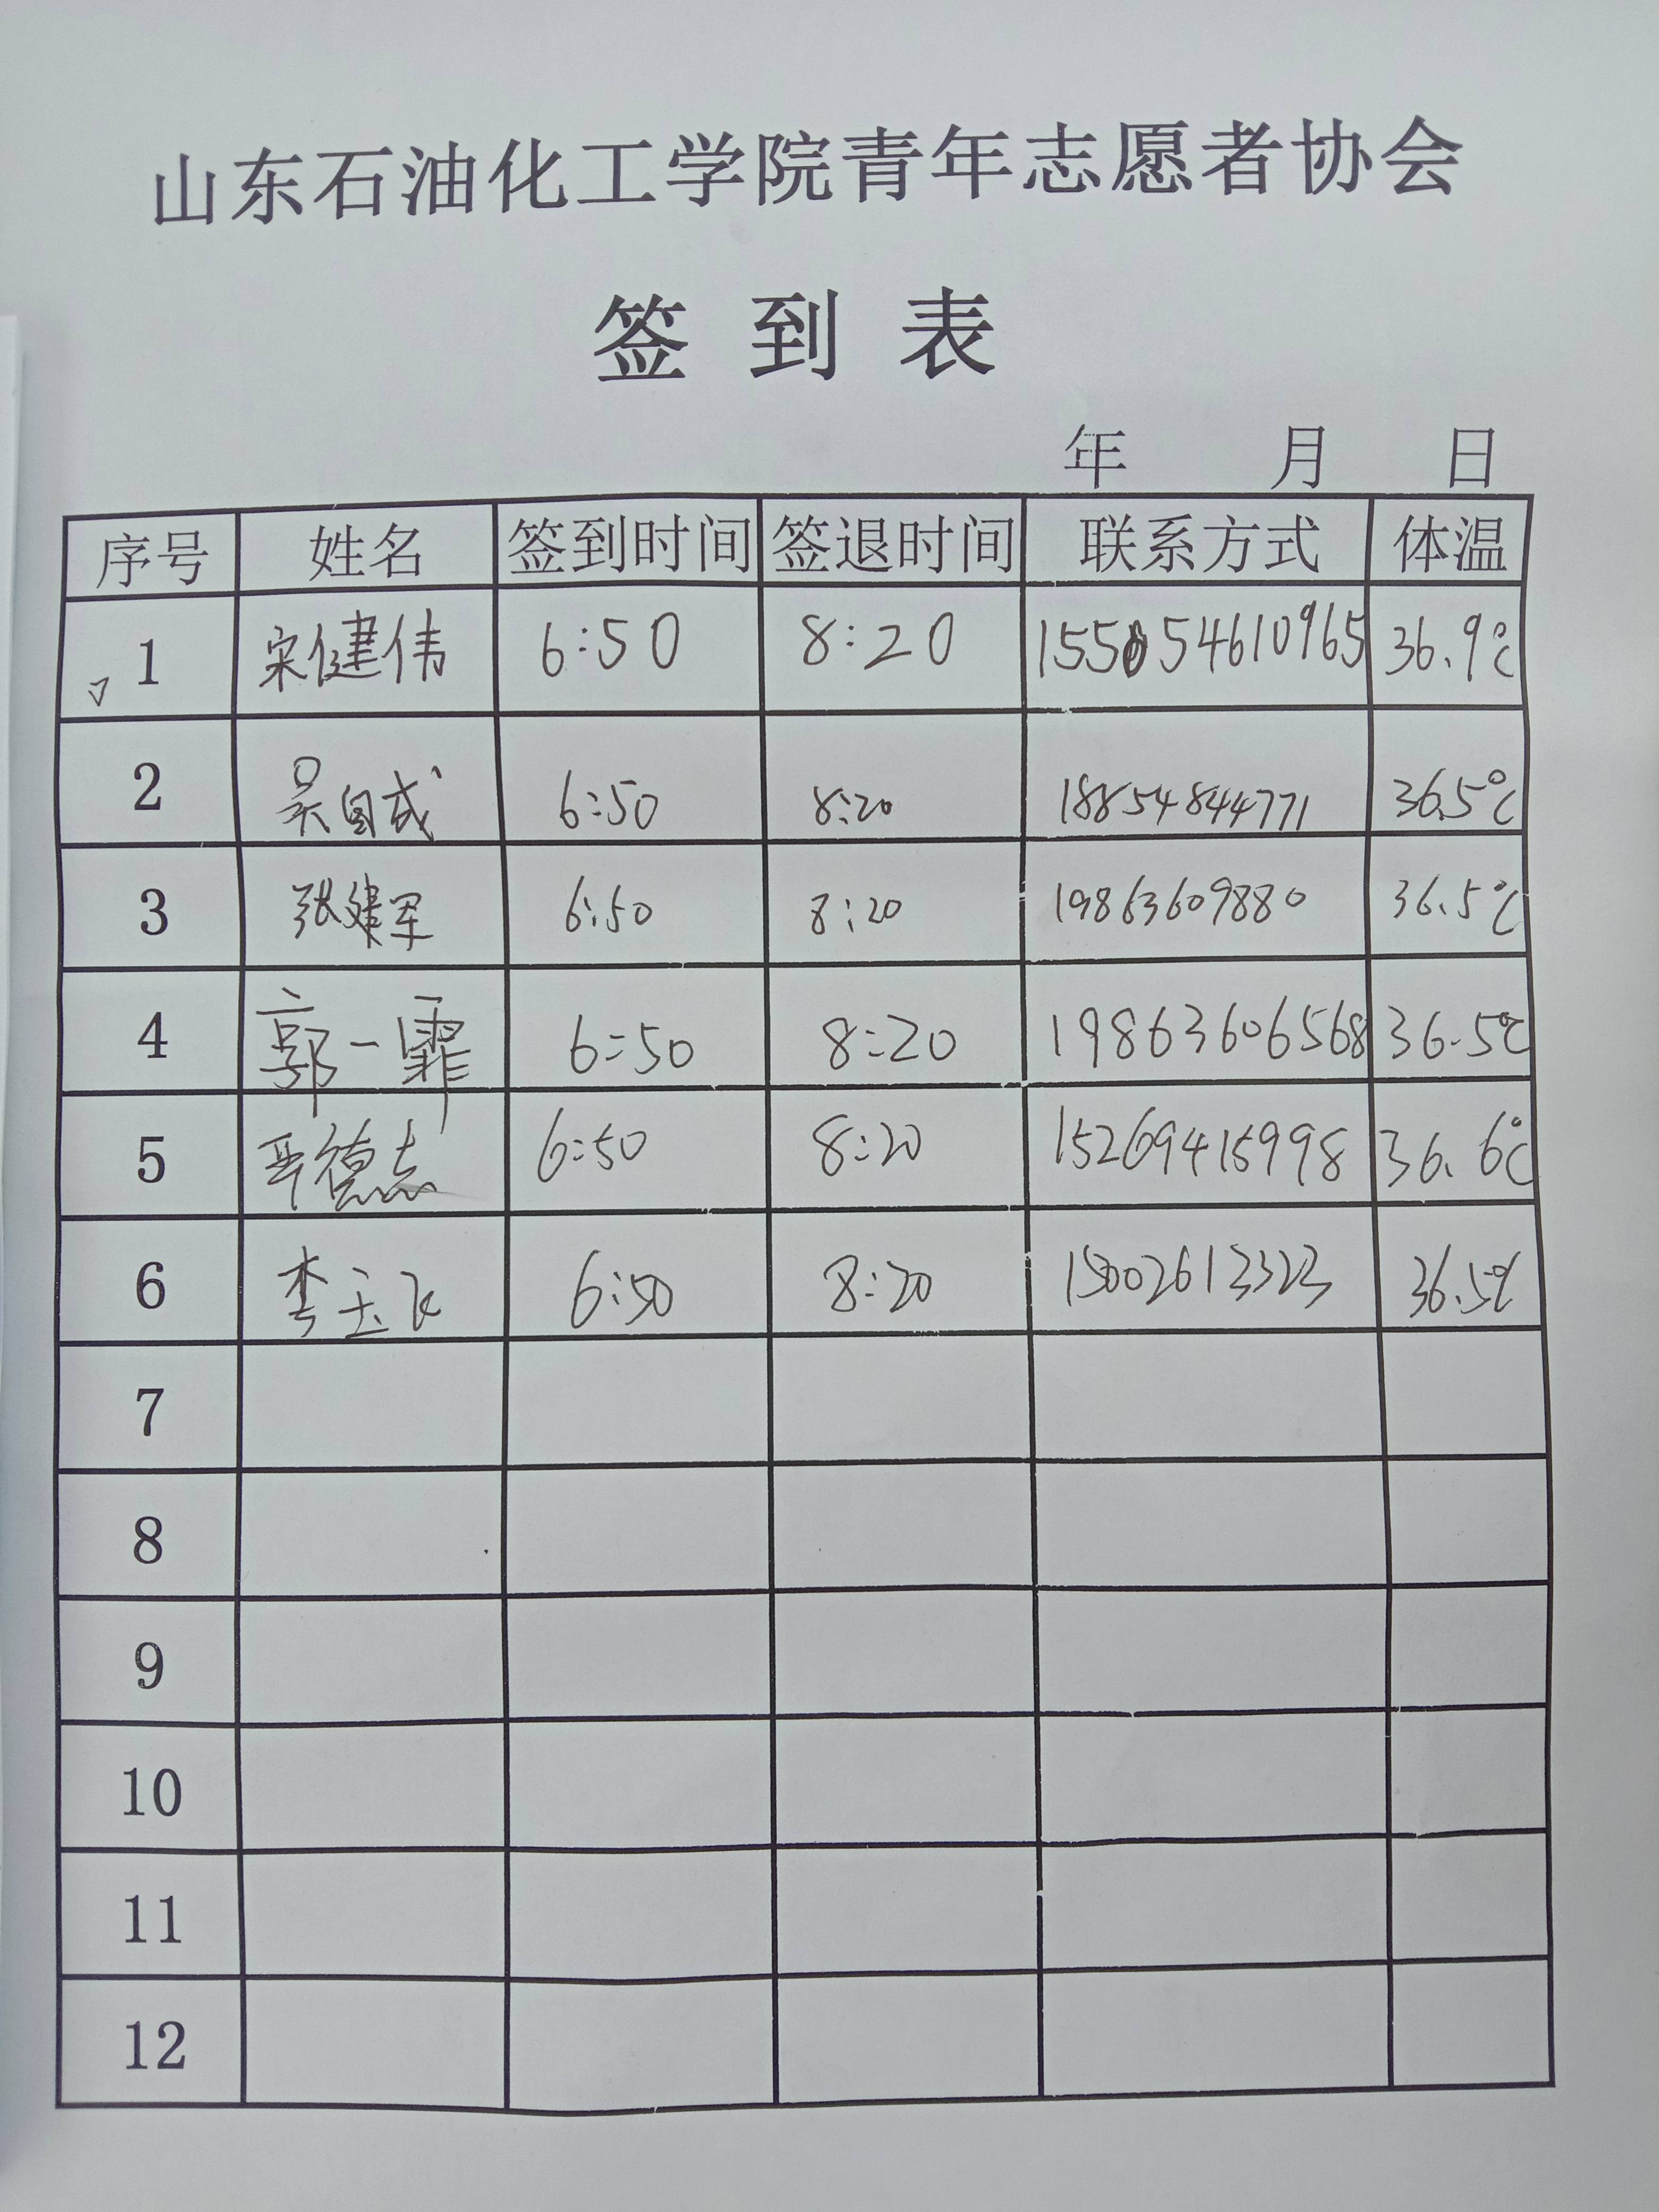 山东石油化工学院青年志愿者协会
签到表
年 月 日
序号 姓名 签到时间 签退时间 联系方式 体温
1 宋健伟 6:50 8:20 36.9℃
2 吴自成 6:50 8:20 18854844771 36.5℃
3 张建军 6:50 8:20 19863609880 36.5℃
4 郭一霏 6:50 8:20 19863606568 36.5℃
5 德志 6:50 8:20 15269415998 36.6℃
6 李玉飞 6:50 8:20 15002613323 36.5℃
7
8
9
10
11
12